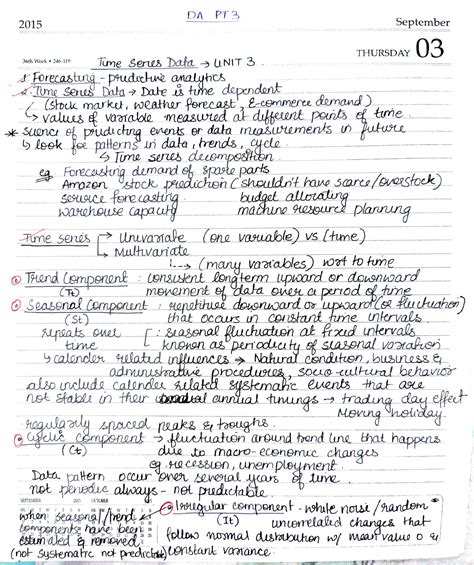 DA PT 3
2015 September
36th Week • 246-119 THURSDAY 03
Time Series Data → UNIT 3
1. Forecasting - predictive analytics
2. Time Series Data → Date is time dependent
(stock market, weather forecast, E-commerce demand)
↳ values of variable measured at different points of time.
* Science of predicting events or data measurements in future
↳ look for patterns in data, trends, cycle.
↳ Time series decomposition
eg Forecasting demand of spare parts
Amazon stock prediction (shouldn't have scarce/overstock)
service forecasting budget allocating
warehouse capacity machine resource planning
Time series → Univariate (one variable) vs (time)
↳ Multivariate
↳ (many variables) wrt to time
Trend Component : consistent longterm upward or downward
(Tt) movement of data over a period of time
Seasonal Component : repetitive downward or upward (or fluctuation)
(St) that occurs in constant time intervals.
repeats over : seasonal fluctuation at fixed intervals
time known as periodicity of seasonal variation
↳ calender related influences → Natural condition, business &
administrative procedures, socio-cultural behavior
also include calender related systematic events that are
not stable in their annual timings → trading day effect
Moving holiday.
regularly spaced peaks & troughs.
Cyclic component → fluctuation around trend line that happens
(Ct) due to macro-economic changes
eg. recession, unemployment.
Data pattern occur over several years of time.
not periodic always - not predictable.
SEPTEMBER 2015 OCTOBER
Irregular component - while noise / random
when seasonal / trend (It) uncorrelated changes that
components have been follow normal distribution w/ mean value 0 &
estimated & removed constant variance.
(not systematic not predictable)